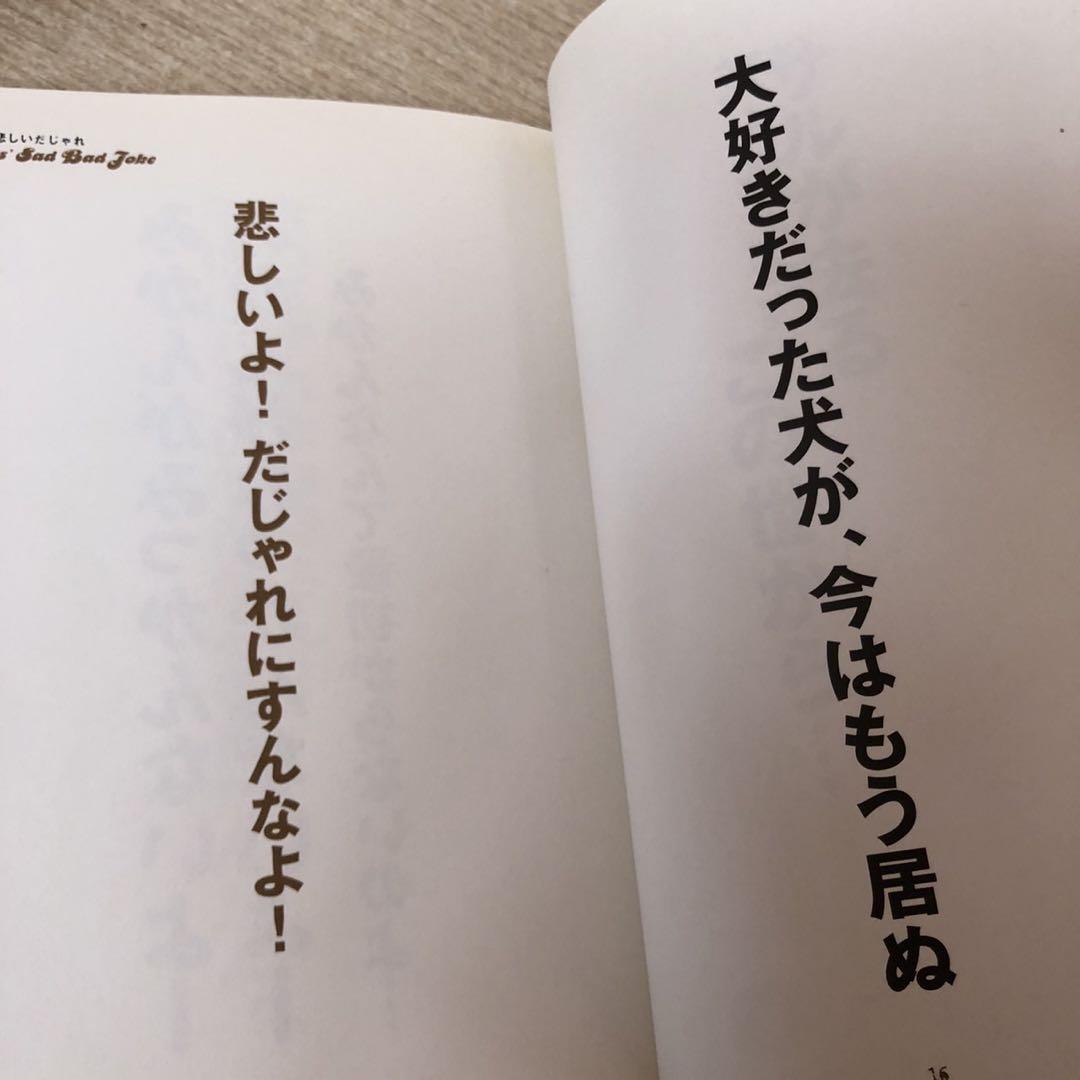 大好きだった犬が、今はもう居ぬ
16
悲しいだじゃれ
Sad Bad Joke
悲しいよ！だじゃれにすんなよ！